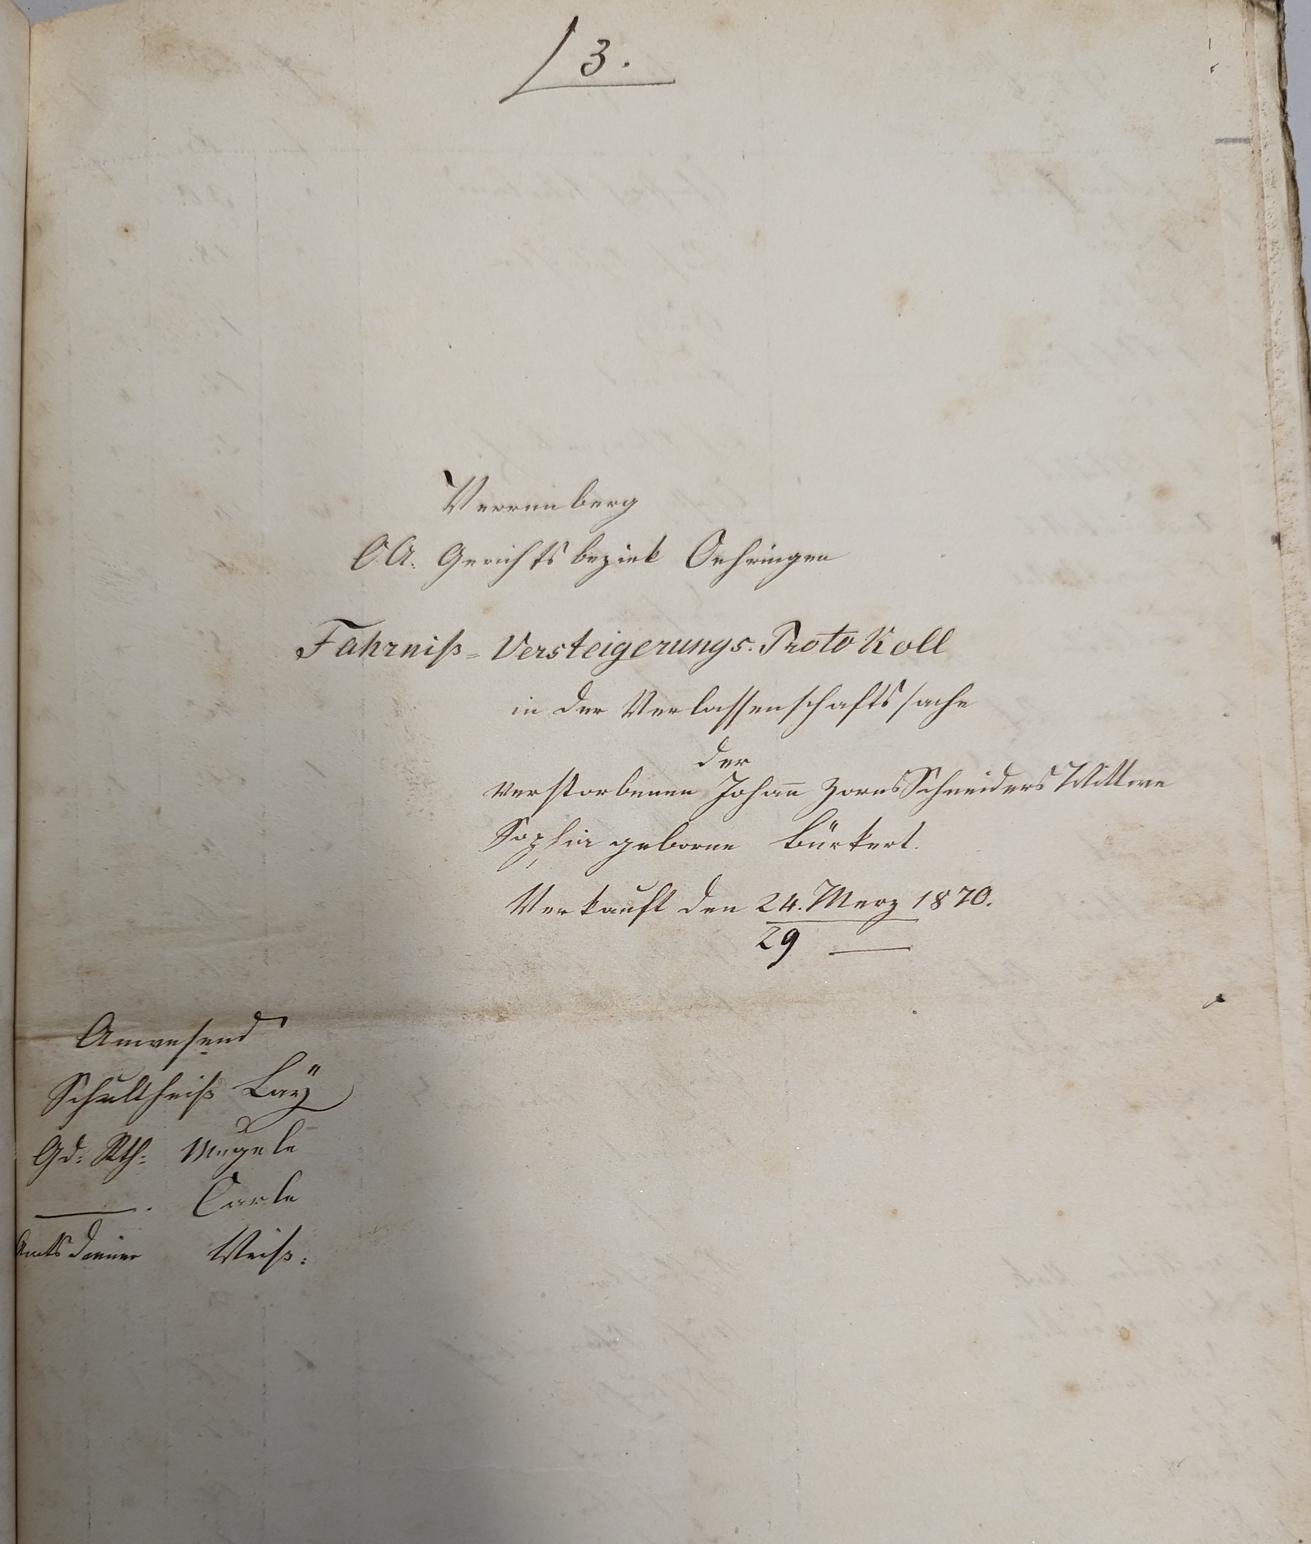 3.
Verrenberg
O.A. Gerichtsbezirk Oehringen
Fahrniß-Versteigerungs-Protokoll
in der Verlassenschaftssache
der
verstorbenen Johann Zorns Schneiders Wittwe
Sophia geborne Bürkert.
Verkauft den 24. Merz 1870.
29 —
Anwesend
Schultheiß Laÿ
Gd: Rth: Megele
—. Carle
Amtsdiener Weiß: